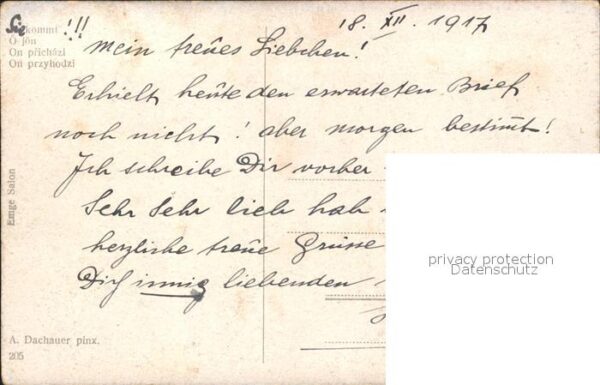 Sie kommt !!!
Ő jön
On přichází
On przyhodzi
18. XII. 1917
Mein treues Liebchen!
Erhielt heute den erwarteten Brief
noch nicht! aber morgen bestimmt!
Ich schreibe Dir vorher
Sehr Sehr lieb hab
herzliche treue Grüsse
Dich innig liebenden
Emge Salon
A. Dachauer pinx.
205
privacy protection
Datenschutz